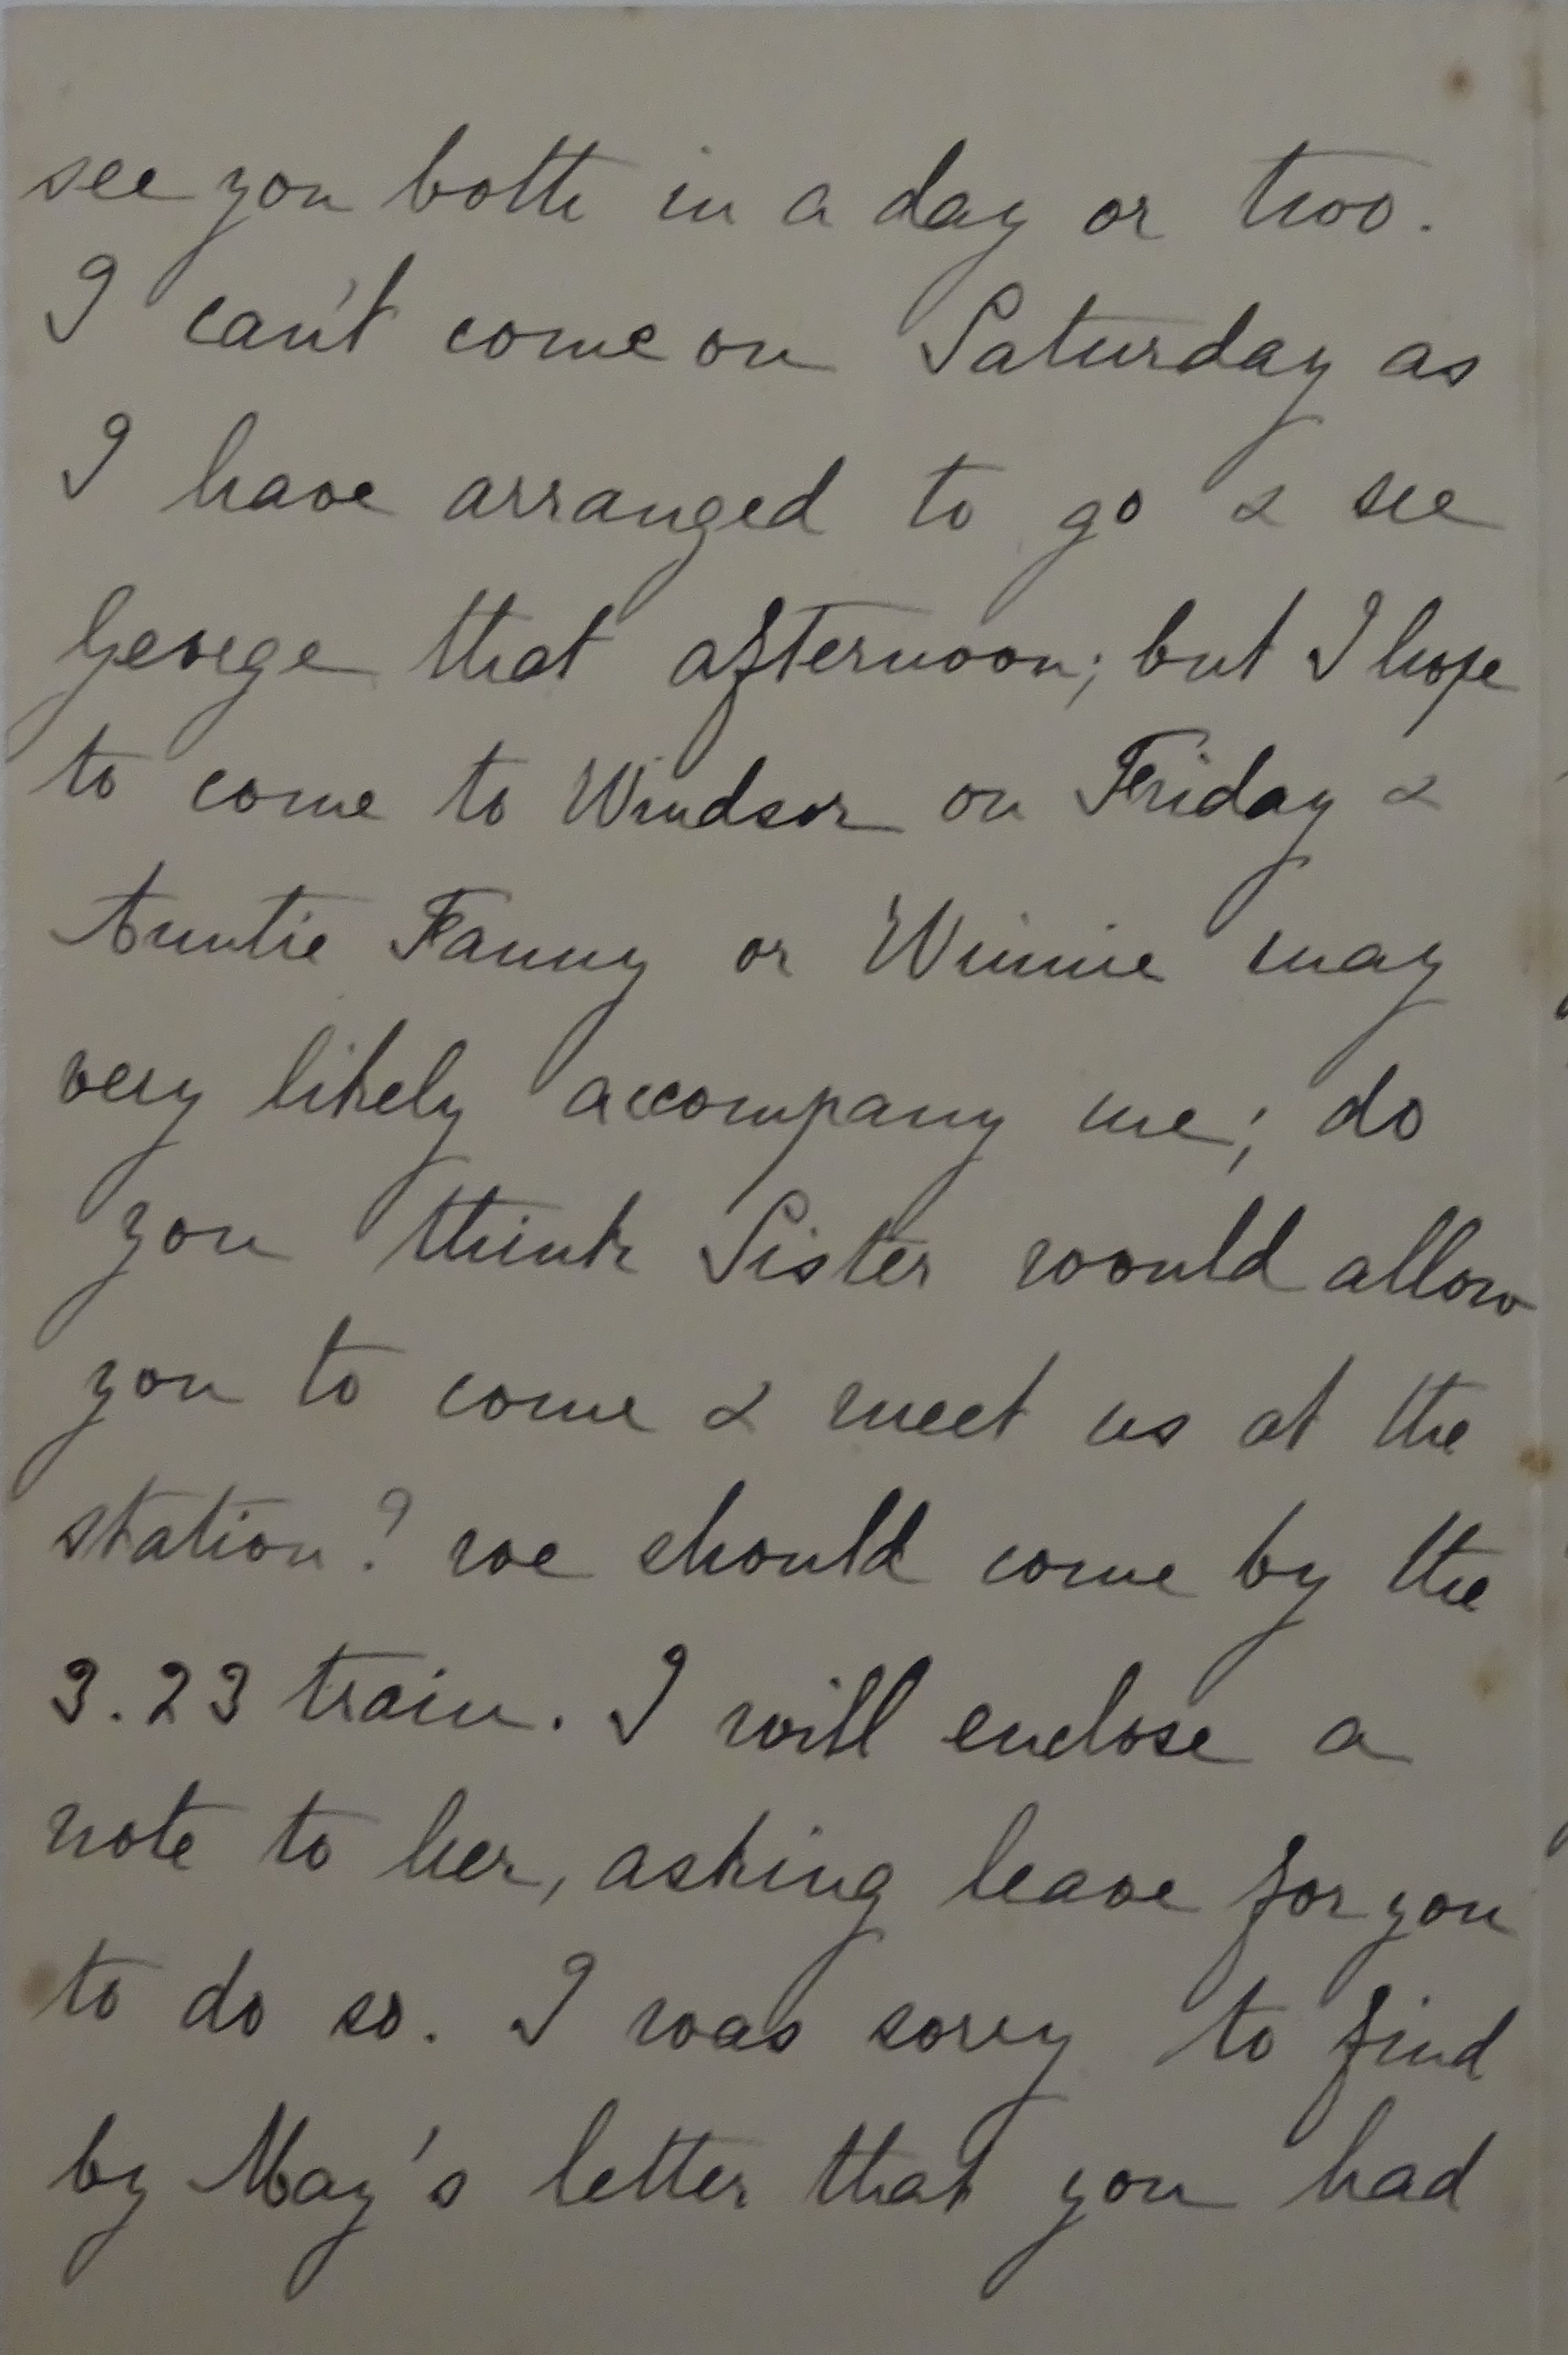 see you both in a day or two.
I can't come on Saturday as
I have arranged to go & see
George that afternoon; but I hope
to come to Windsor on Friday &
Auntie Fanny or Winnie may
very likely accompany me; do
you think Sister would allow
you to come & meet us at the
station? we should come by the
3.23 train. I will enclose a
note to her, asking leave for you
to do so. I was sorry to find
by May's letter that you had